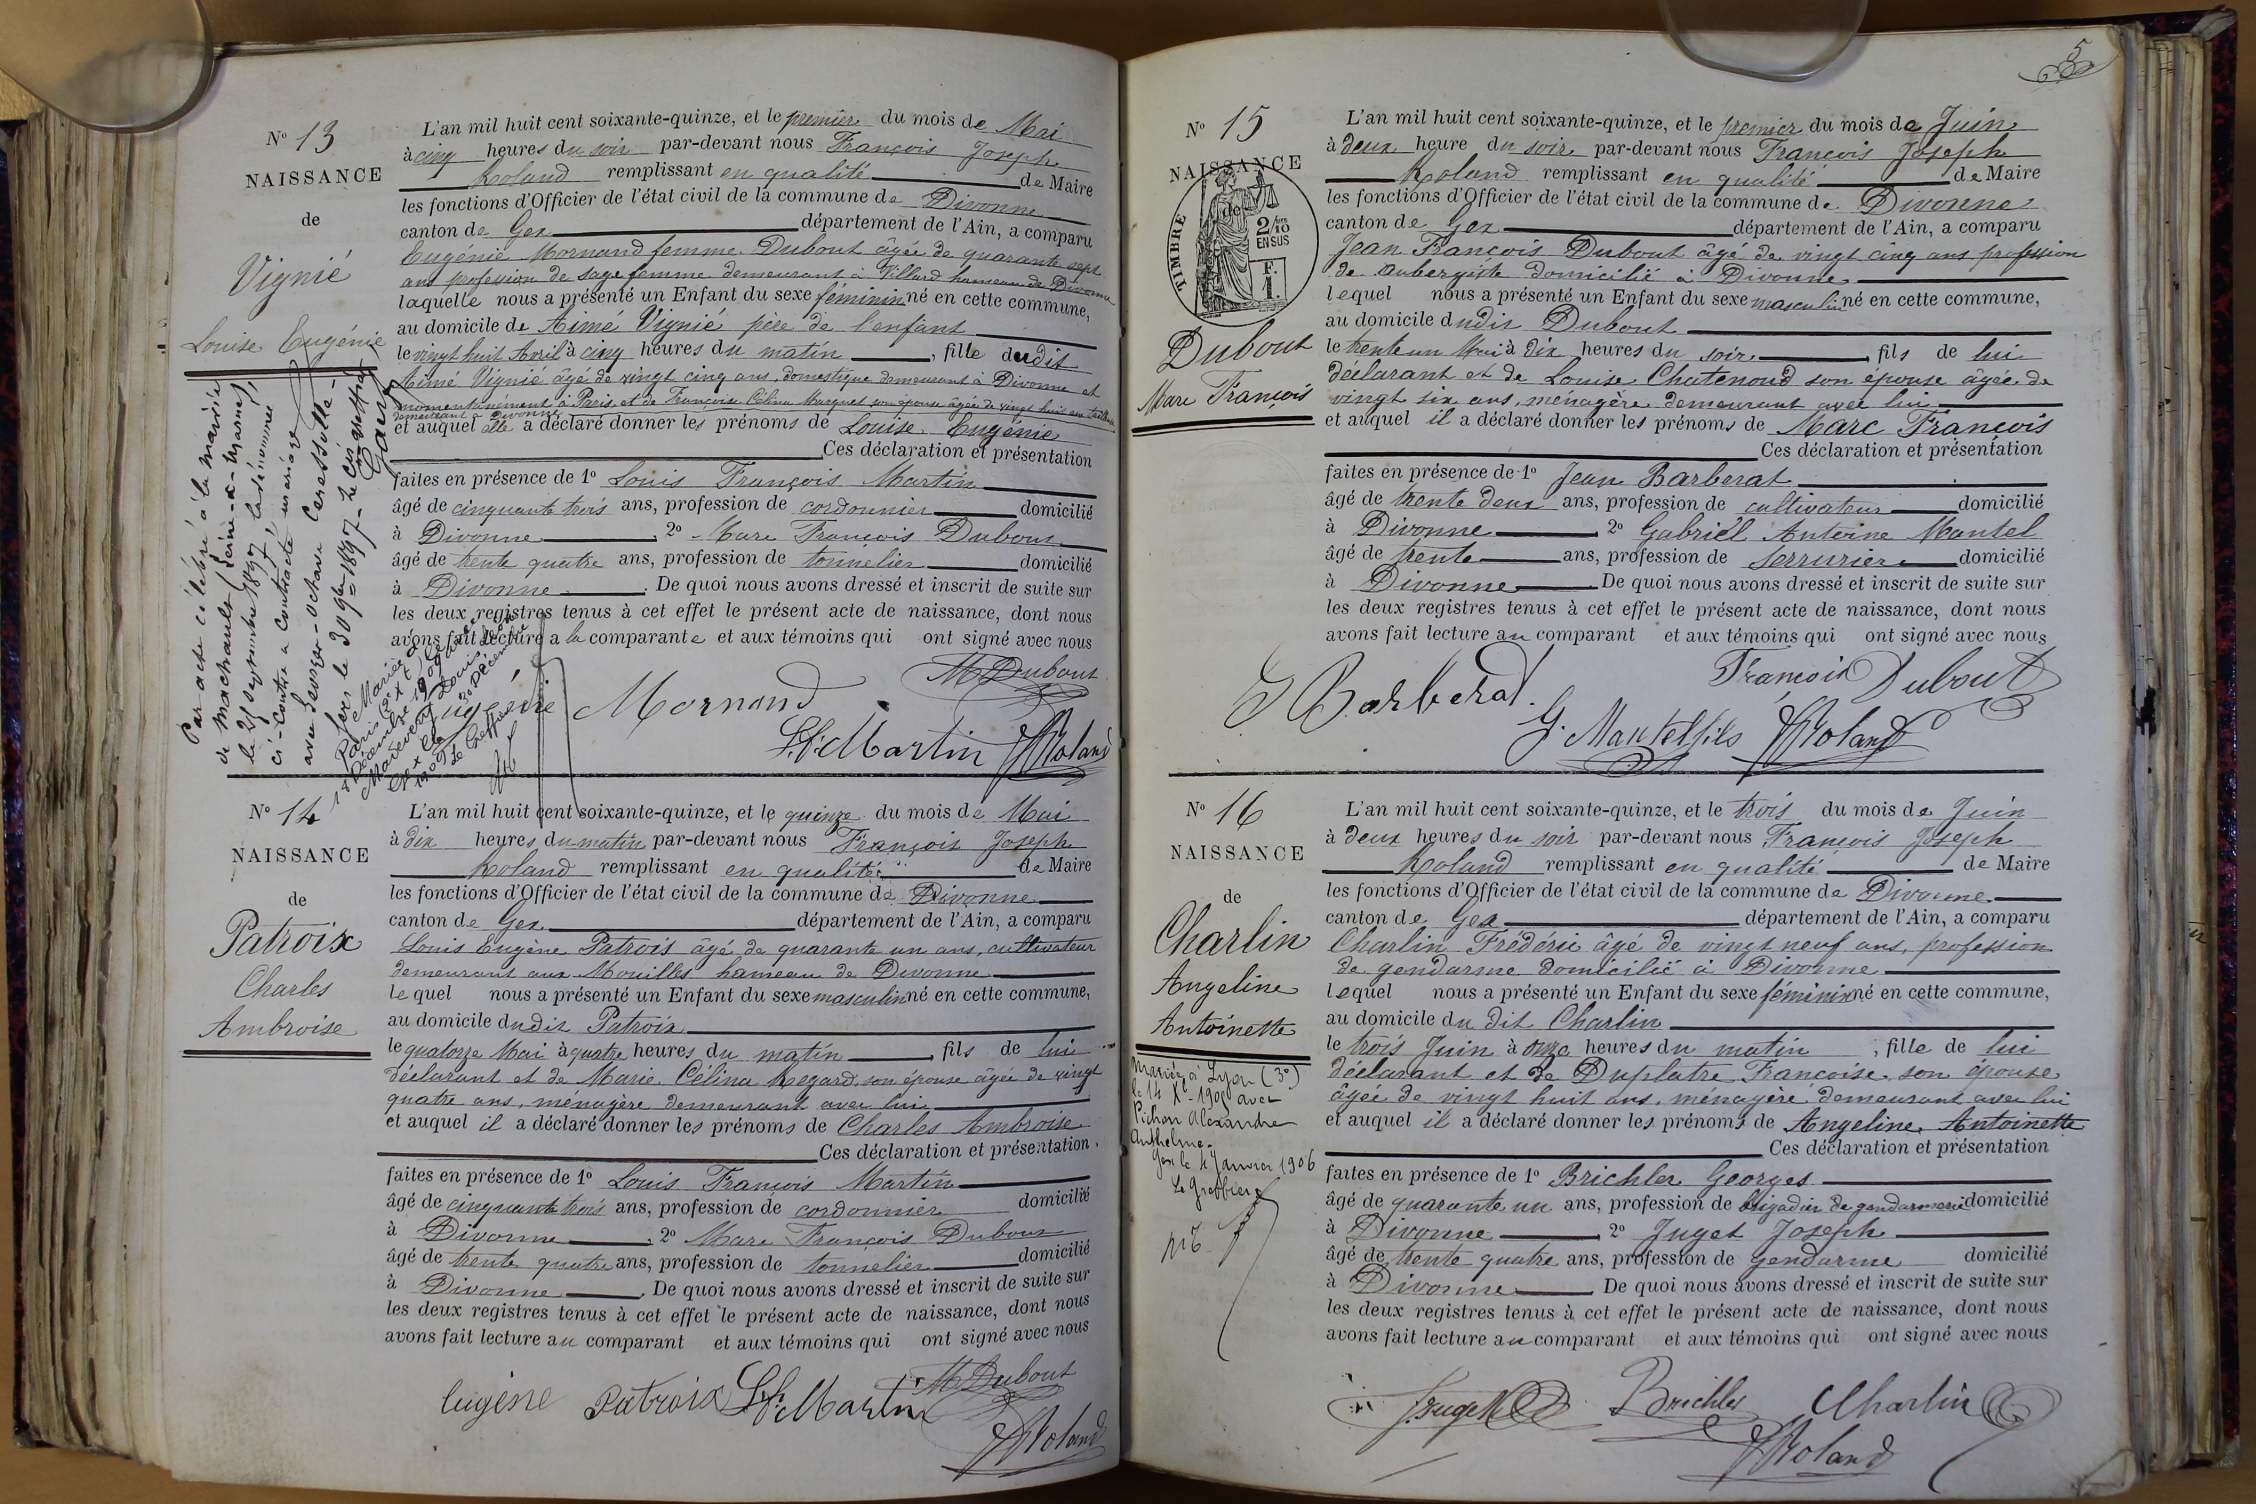 N° 13
NAISSANCE
de
Vignié
Louise Eugénie
Par acte célébré à la mairie
de Machault, Seine-&-Marne,
le 25 septembre 1897, la dénommée
ci-contre a contracté mariage
avec Georges-Octave
Gex le 30 9bre 1897 - Le Greffier
Mariée à
Paris (X
Décembre 1909 avec
Louis
Gex le 20 Décembre
1909 Le Greffier
L'an mil huit cent soixante-quinze, et le premier du mois de Mai
à cinq heures du soir par-devant nous François Joseph
Roland remplissant en qualité de Maire
les fonctions d'Officier de l'état civil de la commune de Divonne
canton de Gex département de l'Ain, a comparu
Eugénie Mornand femme Dubout âgée de quarante sept
ans profession de sage femme demeurant à Villard hameau de Divonne
laquelle nous a présenté un Enfant du sexe féminin né en cette commune,
au domicile de Aimé Vignié père de l'enfant
le vingt huit Avril à cinq heures du matin, fille dudit
Aimé Vignié âgé de vingt cinq ans, domestique demeurant à Divonne et
momentanément à Paris et de Françoise Célina Marquet son épouse âgée de vingt huit ans
demeurant à Divonne
et auquel elle a déclaré donner les prénoms de Louise Eugénie
Ces déclaration et présentation
faites en présence de 1° Louis François Martin
âgé de cinquante trois ans, profession de cordonnier domicilié
à Divonne, 2° Marc François Dubout
âgé de trente quatre ans, profession de tonnelier domicilié
à Divonne. De quoi nous avons dressé et inscrit de suite sur
les deux registres tenus à cet effet le présent acte de naissance, dont nous
avons fait lecture a la comparante et aux témoins qui ont signé avec nous
M Dubout
Eugénie Mornand
L.f. Martin Roland
N° 14
NAISSANCE
de
Patroix
Charles
Ambroise
L'an mil huit cent soixante-quinze, et le quinze du mois de Mai
à dix heures du matin par-devant nous François Joseph
Roland remplissant en qualité de Maire
les fonctions d'Officier de l'état civil de la commune de Divonne
canton de Gex département de l'Ain, a comparu
Louis Eugène Patrois âgé de quarante un ans, cultivateur
demeurant aux Mouilles hameau de Divonne
lequel nous a présenté un Enfant du sexe masculin né en cette commune,
au domicile dudit Patroix
le quatorze Mai à quatre heures du matin, fils de lui
déclarant et de Marie Célina Regard son épouse âgée de vingt
quatre ans, ménagère demeurant avec lui
et auquel il a déclaré donner les prénoms de Charles Ambroise
Ces déclaration et présentation
faites en présence de 1° Louis François Martin
âgé de cinquante trois ans, profession de cordonnier domicilié
à Divonne, 2° Marc François Dubout
âgé de trente quatre ans, profession de tonnelier domicilié
à Divonne. De quoi nous avons dressé et inscrit de suite sur
les deux registres tenus à cet effet le présent acte de naissance, dont nous
avons fait lecture au comparant et aux témoins qui ont signé avec nous
M Dubout
Eugène Patroix L.f. Martin
Roland
5
N° 15
NAISSANCE
de
TIMBRE
2/10
EN SUS
F.
1.
Dubout
Marc François
L'an mil huit cent soixante-quinze, et le premier du mois de Juin
à deux heure du soir par-devant nous François Joseph
Roland remplissant en qualité de Maire
les fonctions d'Officier de l'état civil de la commune de Divonne
canton de Gex département de l'Ain, a comparu
Jean François Dubout âgé de vingt cinq ans profession
de aubergiste domicilié à Divonne
lequel nous a présenté un Enfant du sexe masculin né en cette commune,
au domicile dudit Dubout
le trente un Mai à dix heures du soir, fils de lui
déclarant et de Louise Chatenoud son épouse âgée de
vingt six ans, ménagère demeurant avec lui
et auquel il a déclaré donner les prénoms de Marc François
Ces déclaration et présentation
faites en présence de 1° Jean Barberat
âgé de trente deux ans, profession de cultivateur domicilié
à Divonne 2° Gabriel Antoine Mantel
âgé de trente ans, profession de serrurier domicilié
à Divonne. De quoi nous avons dressé et inscrit de suite sur
les deux registres tenus à cet effet le présent acte de naissance, dont nous
avons fait lecture au comparant et aux témoins qui ont signé avec nous
J Barberat. François Dubout
G. Mantel fils Roland
N° 16
NAISSANCE
de
Charlin
Angeline
Antoinette
Mariée à Lyon (3e)
le 14 Xe 1905 avec
Pichon Alexandre
Anthelme.
Gex le 4 Janvier 1906
Le Greffier
L'an mil huit cent soixante-quinze, et le trois du mois de Juin
à deux heures du soir par-devant nous François Joseph
Roland remplissant en qualité de Maire
les fonctions d'Officier de l'état civil de la commune de Divonne
canton de Gex département de l'Ain, a comparu
Charlin Frédéric âgé de vingt neuf ans, profession
de gendarme domicilié à Divonne
lequel nous a présenté un Enfant du sexe féminin né en cette commune,
au domicile du dit Charlin
le trois Juin à onze heures du matin, fille de lui
déclarant et de Duplatre Françoise son épouse
âgée de vingt huit ans, ménagère demeurant avec lui
et auquel il a déclaré donner les prénoms de Angeline Antoinette
Ces déclaration et présentation
faites en présence de 1° Brichler Georges
âgé de quarante un ans, profession de brigadier de gendarmerie domicilié
à Divonne, 2° Juget Joseph
âgé de trente quatre ans, profession de gendarme domicilié
à Divonne. De quoi nous avons dressé et inscrit de suite sur
les deux registres tenus à cet effet le présent acte de naissance, dont nous
avons fait lecture au comparant et aux témoins qui ont signé avec nous
Juget Brichler Charlin
Roland